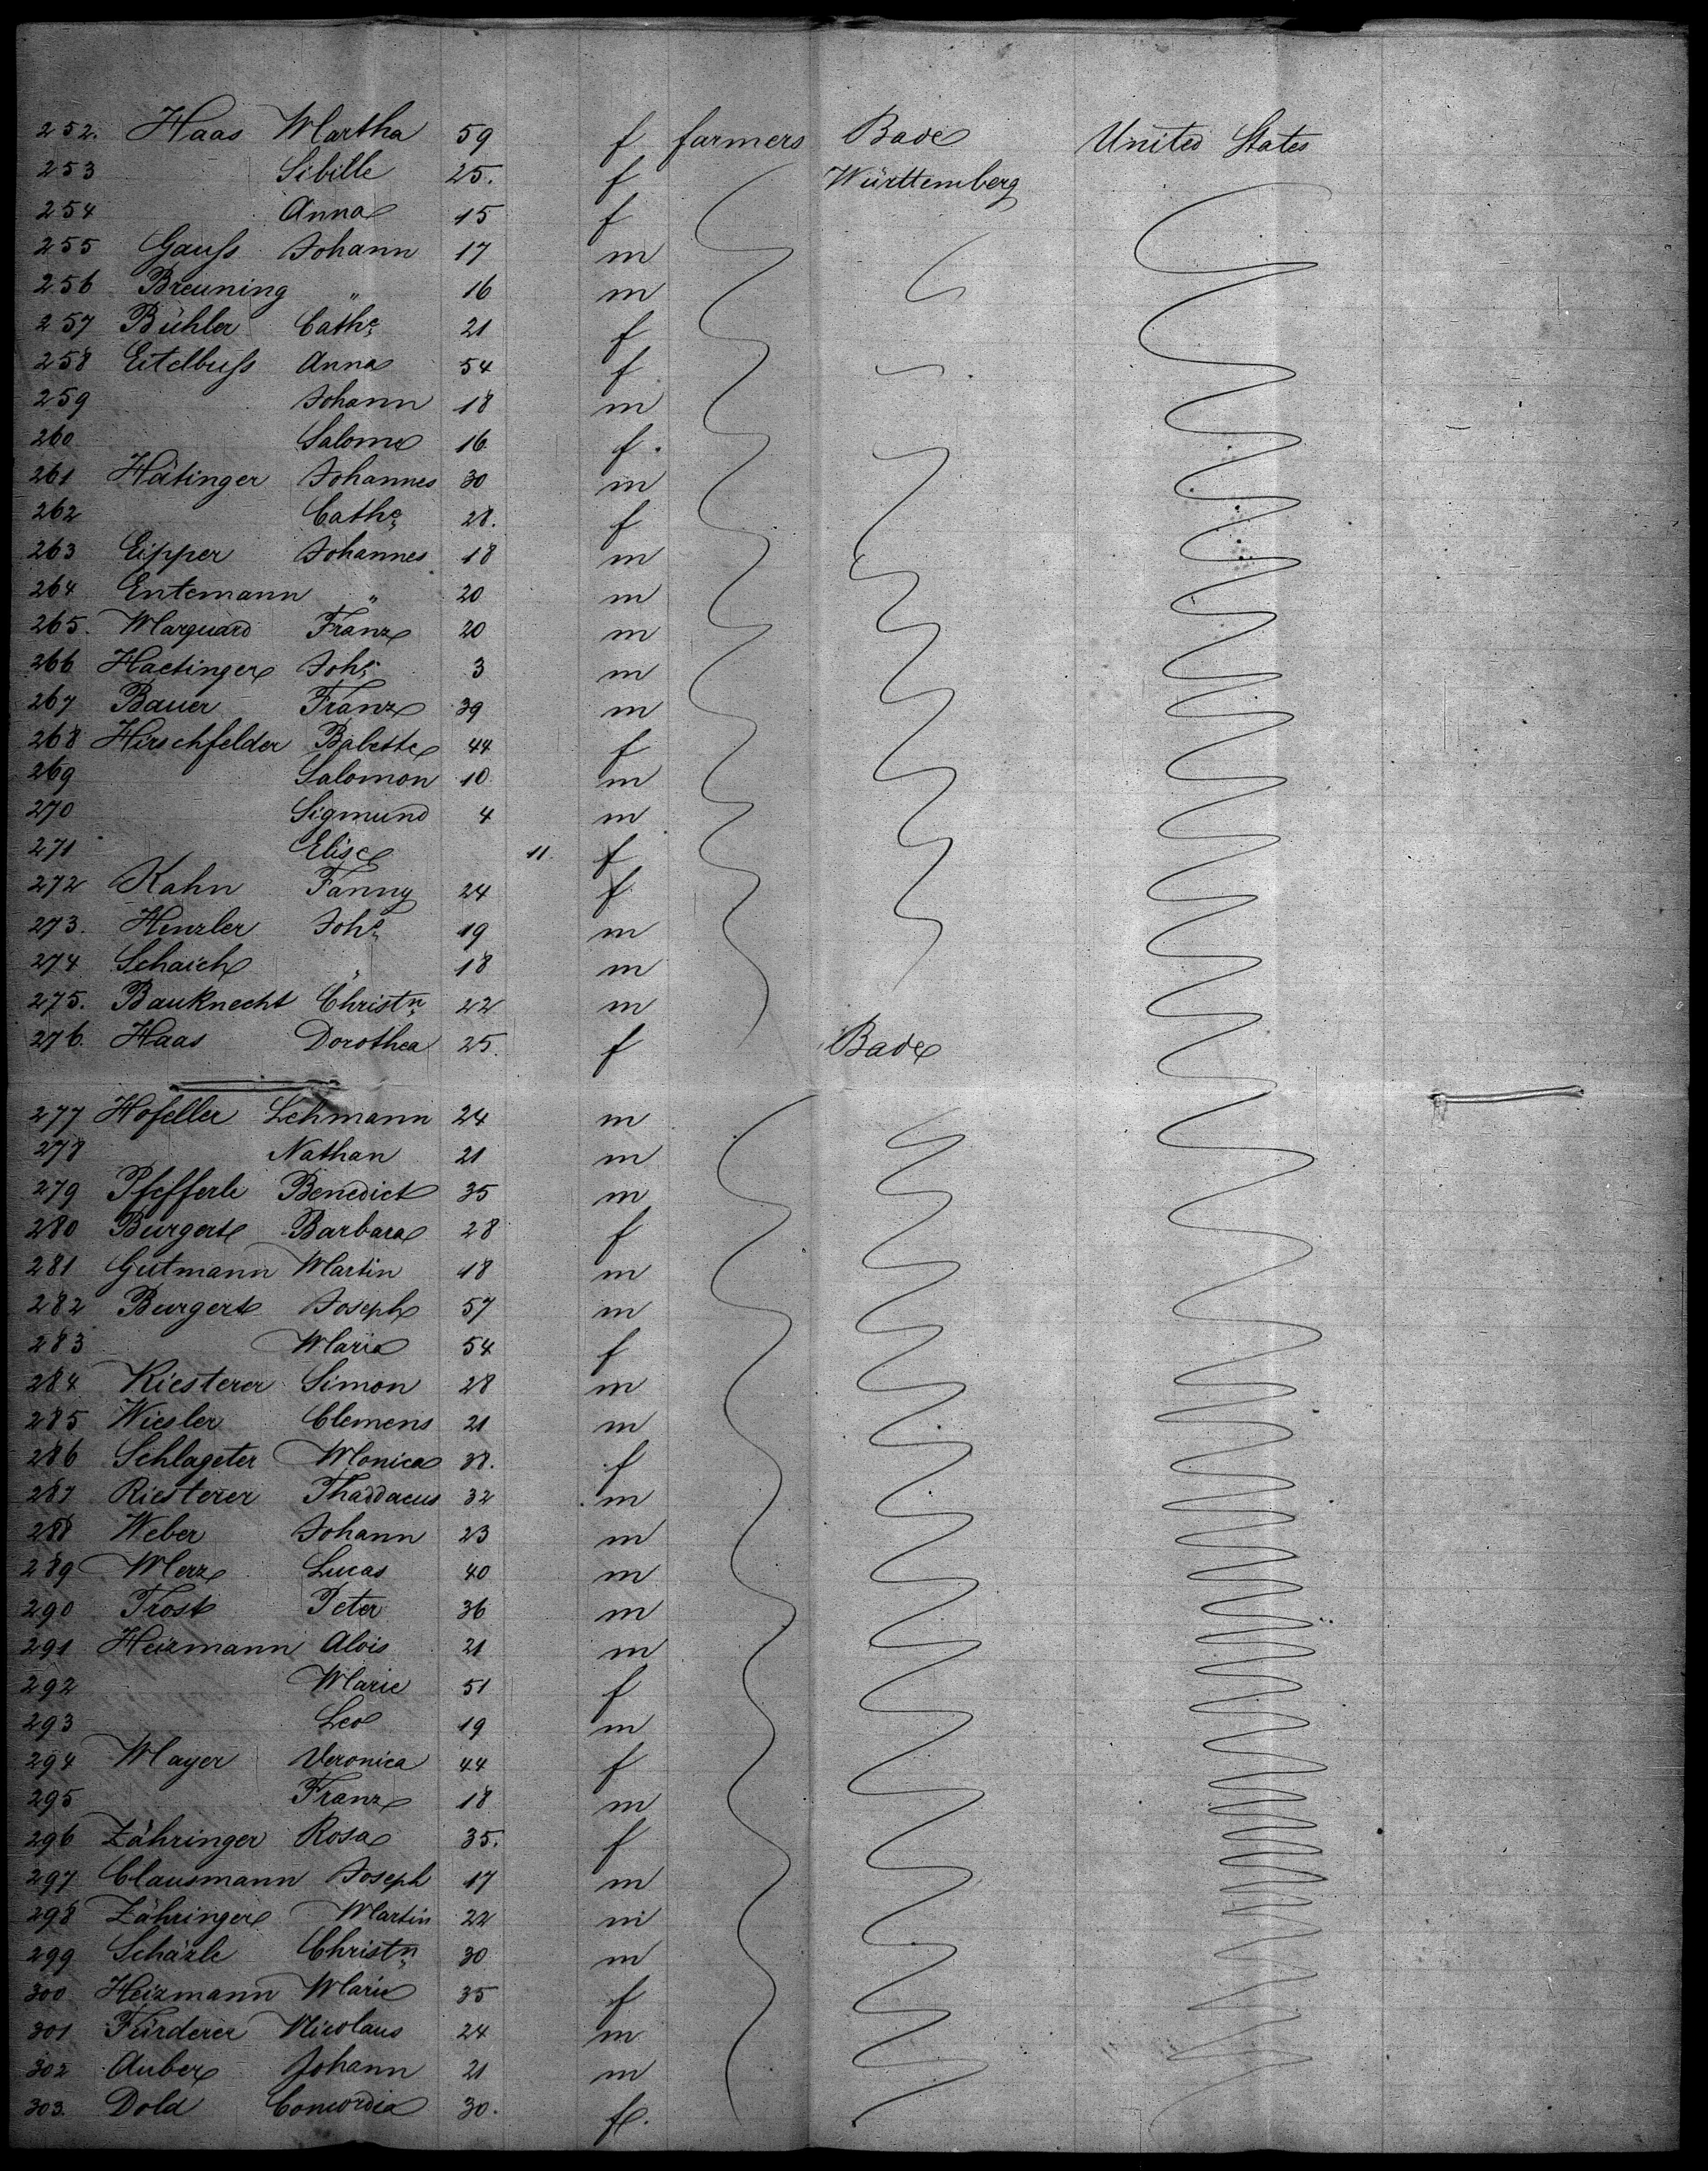 252. Haas Martha 59 f farmers Bade United States
253 Sibille 25. f Württemberg
254 Anna 15 f
255 Gauſs Johann 17 m
256 Breuning " 16 m
257 Bühler Cathe 21 f
258 Eitelbuſs Anna 54 f
259 Johann 18 m
260 Salome 16 f.
261 Hätinger Johannes 30 m
262 Cathe 28. f
263 Eipper Johannes 18 m
264 Entemann " 20 m
265. Marquard Franz 20 m
266 Haetinger Johs 3 m
267 Bauer Franz 39 m
268 Hirschfelder Babette 44 f
269 Salomon 10 m
270 Sigmund 4 m
271 Elise 11. f
272 Kahn Fanny 24 f
273. Henzler Johs 19 m
274 Schaich " 18 m
275. Bauknecht Christn 22 m
276. Haas Dorothea 25. f Bade
277 Hofeller Lehmann 24 m
278 Nathan 21 m
279 Pfefferle Benedict 35 m
280 Burgert Barbara 28 f
281 Gutmann Martin 18 m
282 Burgert Joseph 57 m
283 Maria 54 f
284 Riesterer Simon 28 m
285 Wiesler Clemens 21 m
286 Schlageter Monica 38. f
287 Riesterer Thaddaeus 32 m
288 Weber Johann 23 m
289 Merz Lucas 40 m
290 Trost Peter 36 m
291 Heizmann Alois 21 m
292 Marie 51 f
293 Leo 19 m
294 Mayer Veronica 44 f
295 Franz 18 m
296 Zähringer Rosa 35. f
297 Clausmann Joseph 17 m
298 Zähringer Martin 22 m
299 Schärle Christn 30 m
300 Heizmann Marie 35 f
301 Fürderer Nicolaus 24 m
302 Auber Johann 21 m
303. Dold Concordia 30. f.